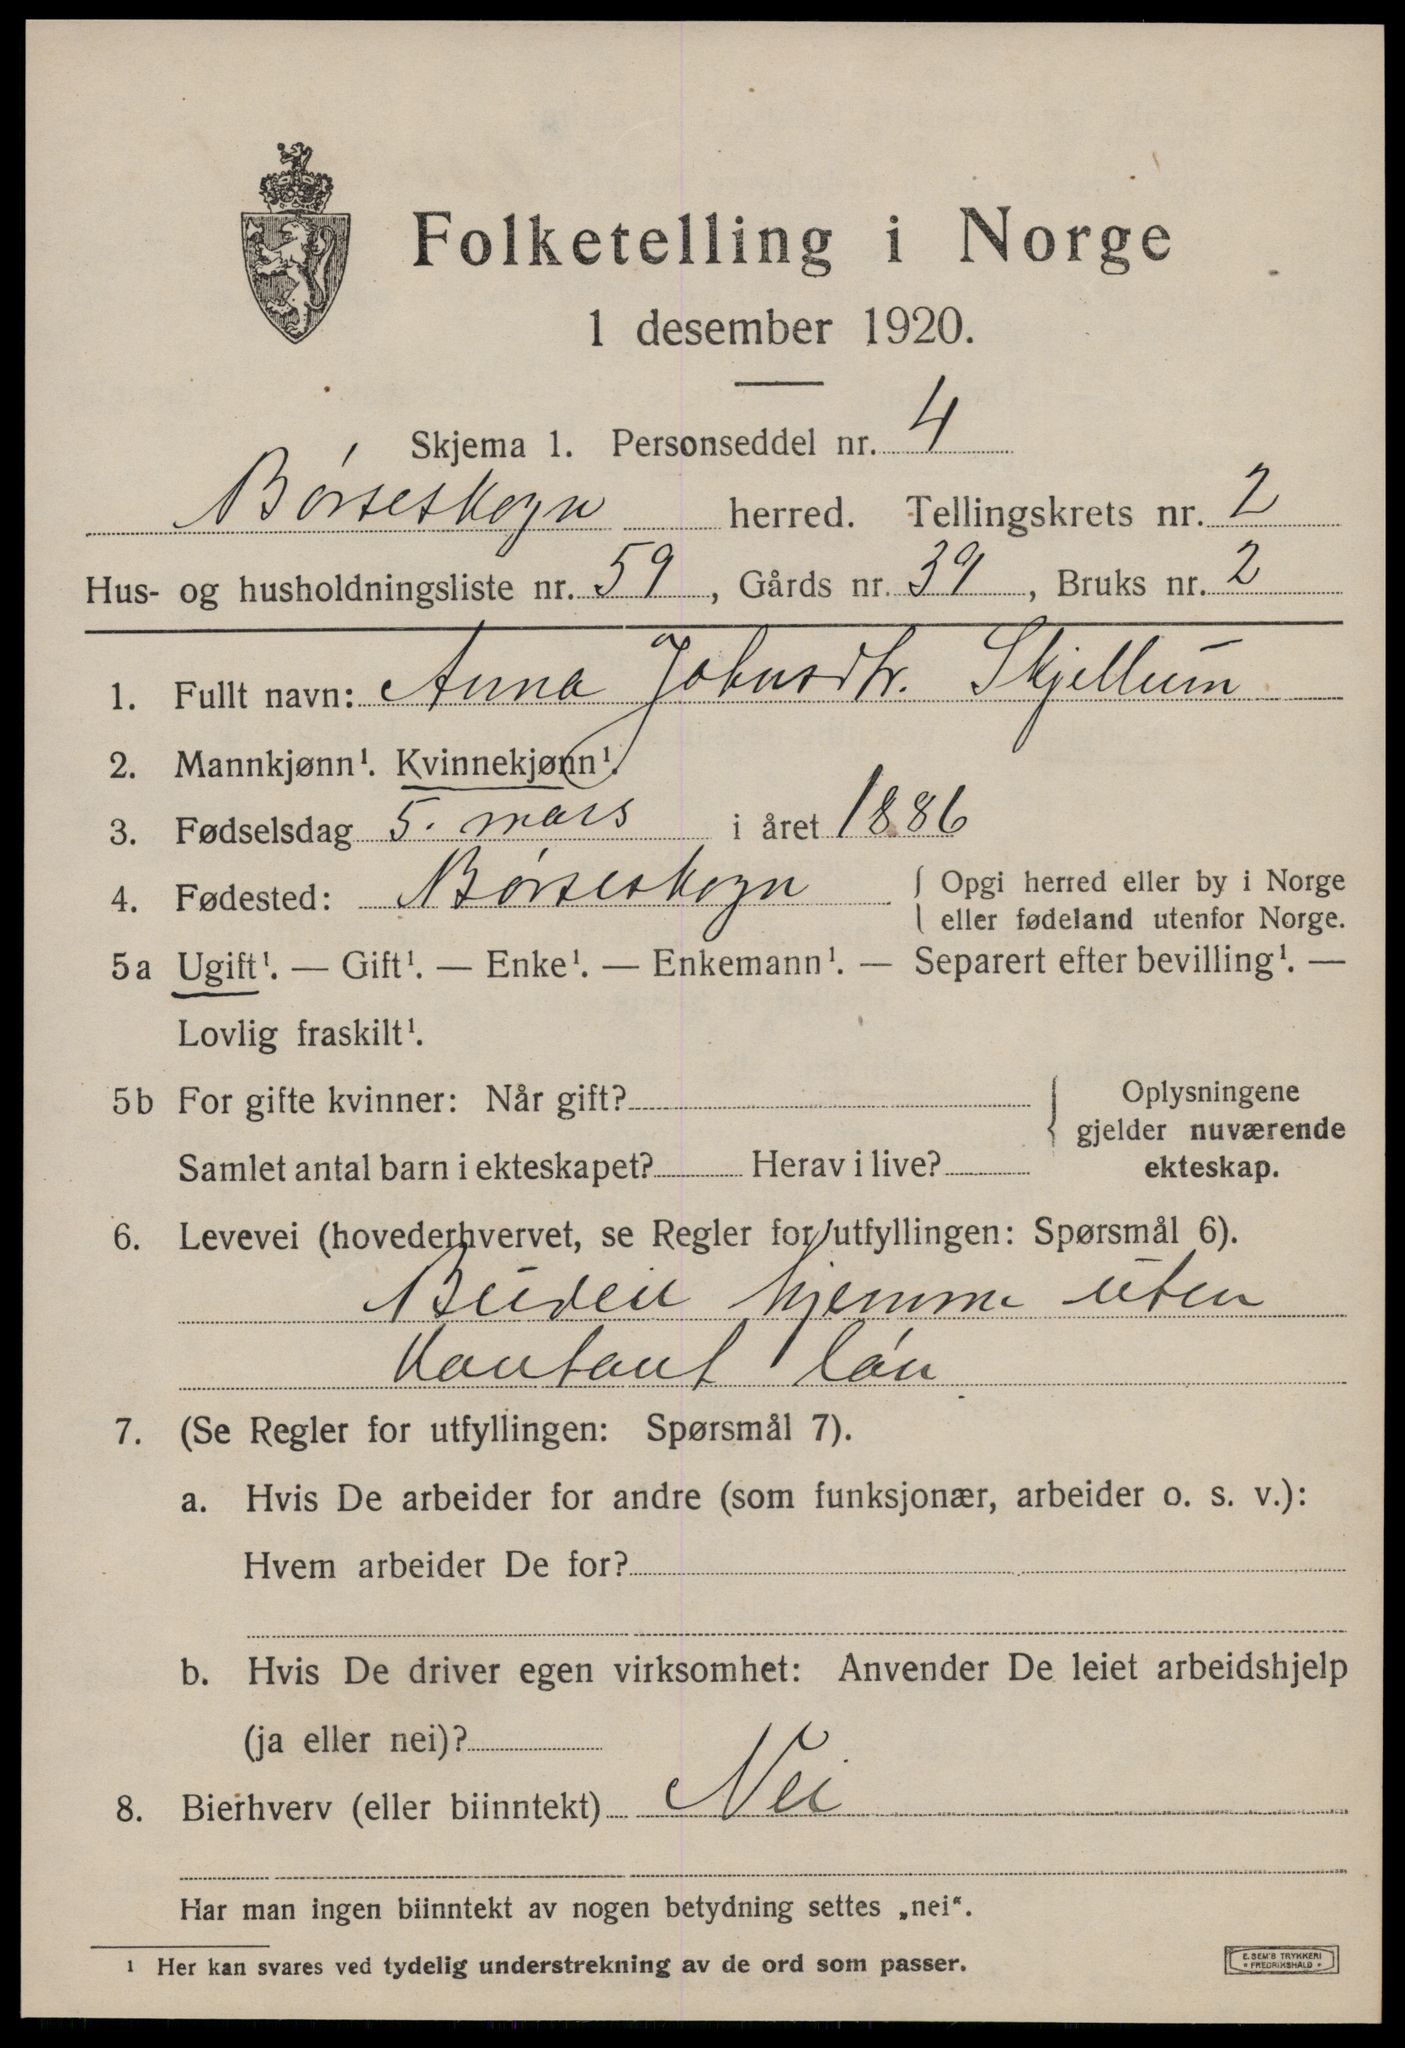 Folketelling i Norge
1 desember 1920.
Skjema 1. Personseddel nr. 4
Børseskogn herred. Tellingskrets nr. 2
Hus- og husholdningsliste nr. 59, Gårds nr. 39, Bruks nr. 2
1. Fullt navn: Anna Johnsdtr. Skjellum
2. Mannkjønn¹. Kvinnekjønn¹.
3. Fødselsdag 5. mars i året 1886
4. Fødested: Børseskogn { Opgi herred eller by i Norge
eller fødeland utenfor Norge.
5a Ugift¹. — Gift¹. — Enke¹. — Enkemann¹. — Separert efter bevilling¹. —
Lovlig fraskilt¹.
5b For gifte kvinner: Når gift? { Oplysningene
gjelder nuværende
Samlet antal barn i ekteskapet? Herav i live? ekteskap.
6. Levevei (hovederhvervet, se Regler for utfyllingen: Spørsmål 6).
Budeie hjemme uten
Kontant løn
7. (Se Regler for utfyllingen: Spørsmål 7).
a. Hvis De arbeider for andre (som funksjonær, arbeider o. s. v.):
Hvem arbeider De for?
b. Hvis De driver egen virksomhet: Anvender De leiet arbeidshjelp
(ja eller nei)?
8. Bierhverv (eller biinntekt) Nei
Har man ingen biinntekt av nogen betydning settes „nei“.
¹ Her kan svares ved tydelig understrekning av de ord som passer.
E. SEM'S TRYKKERI
* FREDRIKSHALD *